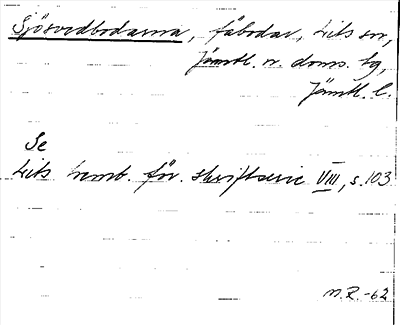 Sjösvedbodarna, fäbodar, Lits sn,
Jämtl. n. doms. tg,
Jämtl. l.
Se
Lits hemb. för. skriftserie VIII, s. 103
N.R. -62